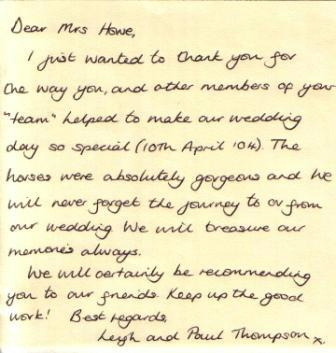 Dear Mrs Howe,
I just wanted to thank you for
the way you, and other members of your
"team" helped to make our wedding
day so special (10th April '04). The
horses were absolutely gorgeous and we
will never forget the journey to or from
our wedding. We will treasure our
memories always.
We will certainly be recommending
you to our friends. Keep up the good
work! Best regards,
Leigh and Paul Thompson x.